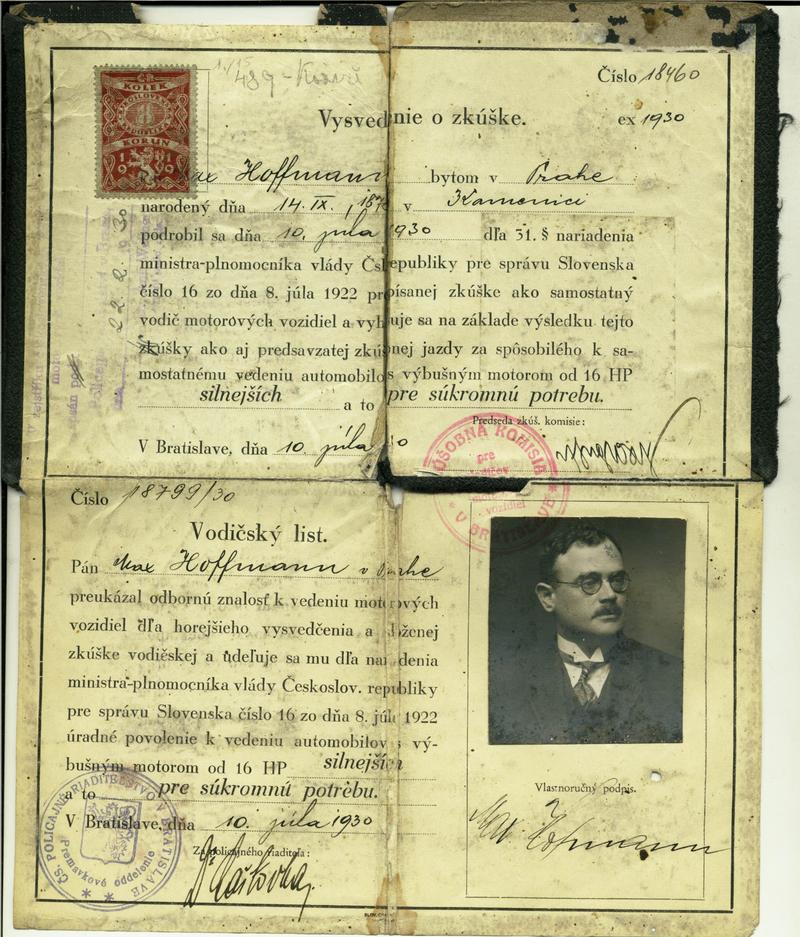 489 -
Číslo 18460
KOLEK
KORUN
1919
Vysvedčenie o zkúške.
ex 1930
Max Hoffmann bytom v Prahe
narodený dňa 14. IX. , 187 v Kamenici
podrobil sa dňa 10. júla 1930 dľa 31. § nariadenia
ministra-plnomocníka vlády Čs republiky pre správu Slovenska
číslo 16 zo dňa 8. júla 1922 predpísanej zkúške ako samostatný
vodič motorových vozidiel a vyhlasuje sa na základe výsledku tejto
zkúšky ako aj predsavzatej zkúšobnej jazdy za spôsobilého k sa-
mostatnému vedeniu automobilov s výbušným motorom od 16 HP
silnejších a to pre súkromnú potrebu.
22. 9. 30
Predseda zkúš. komisie:
V Bratislave, dňa 10. júla 30
KOMISIA
pre
vodičov
motor
vozidiel
V BRATISLAVE
Číslo 18799/30
Vodičský list.
Pán Max Hoffmann v Prahe
preukázal odbornú znalosť k vedeniu motorových
vozidiel dľa horejšieho vysvedčenia a složenej
zkúške vodičskej a udeľuje sa mu dľa nariadenia
ministra-plnomocníka vlády Českoslov. republiky
pre správu Slovenska číslo 16 zo dňa 8. júla 1922
úradné povolenie k vedeniu automobilov s vý-
bušným motorom od 16 HP silnejších
a to pre súkromnú potrebu.
V Bratislave, dňa 10. júla 1930
Za policajného riaditeľa:
ČS. POLICAJNÉ RIADITEĽSTVO V BRATISLAVE
Premávkové oddelenie
Vlastnoručný podpis.
Max Hoffmann